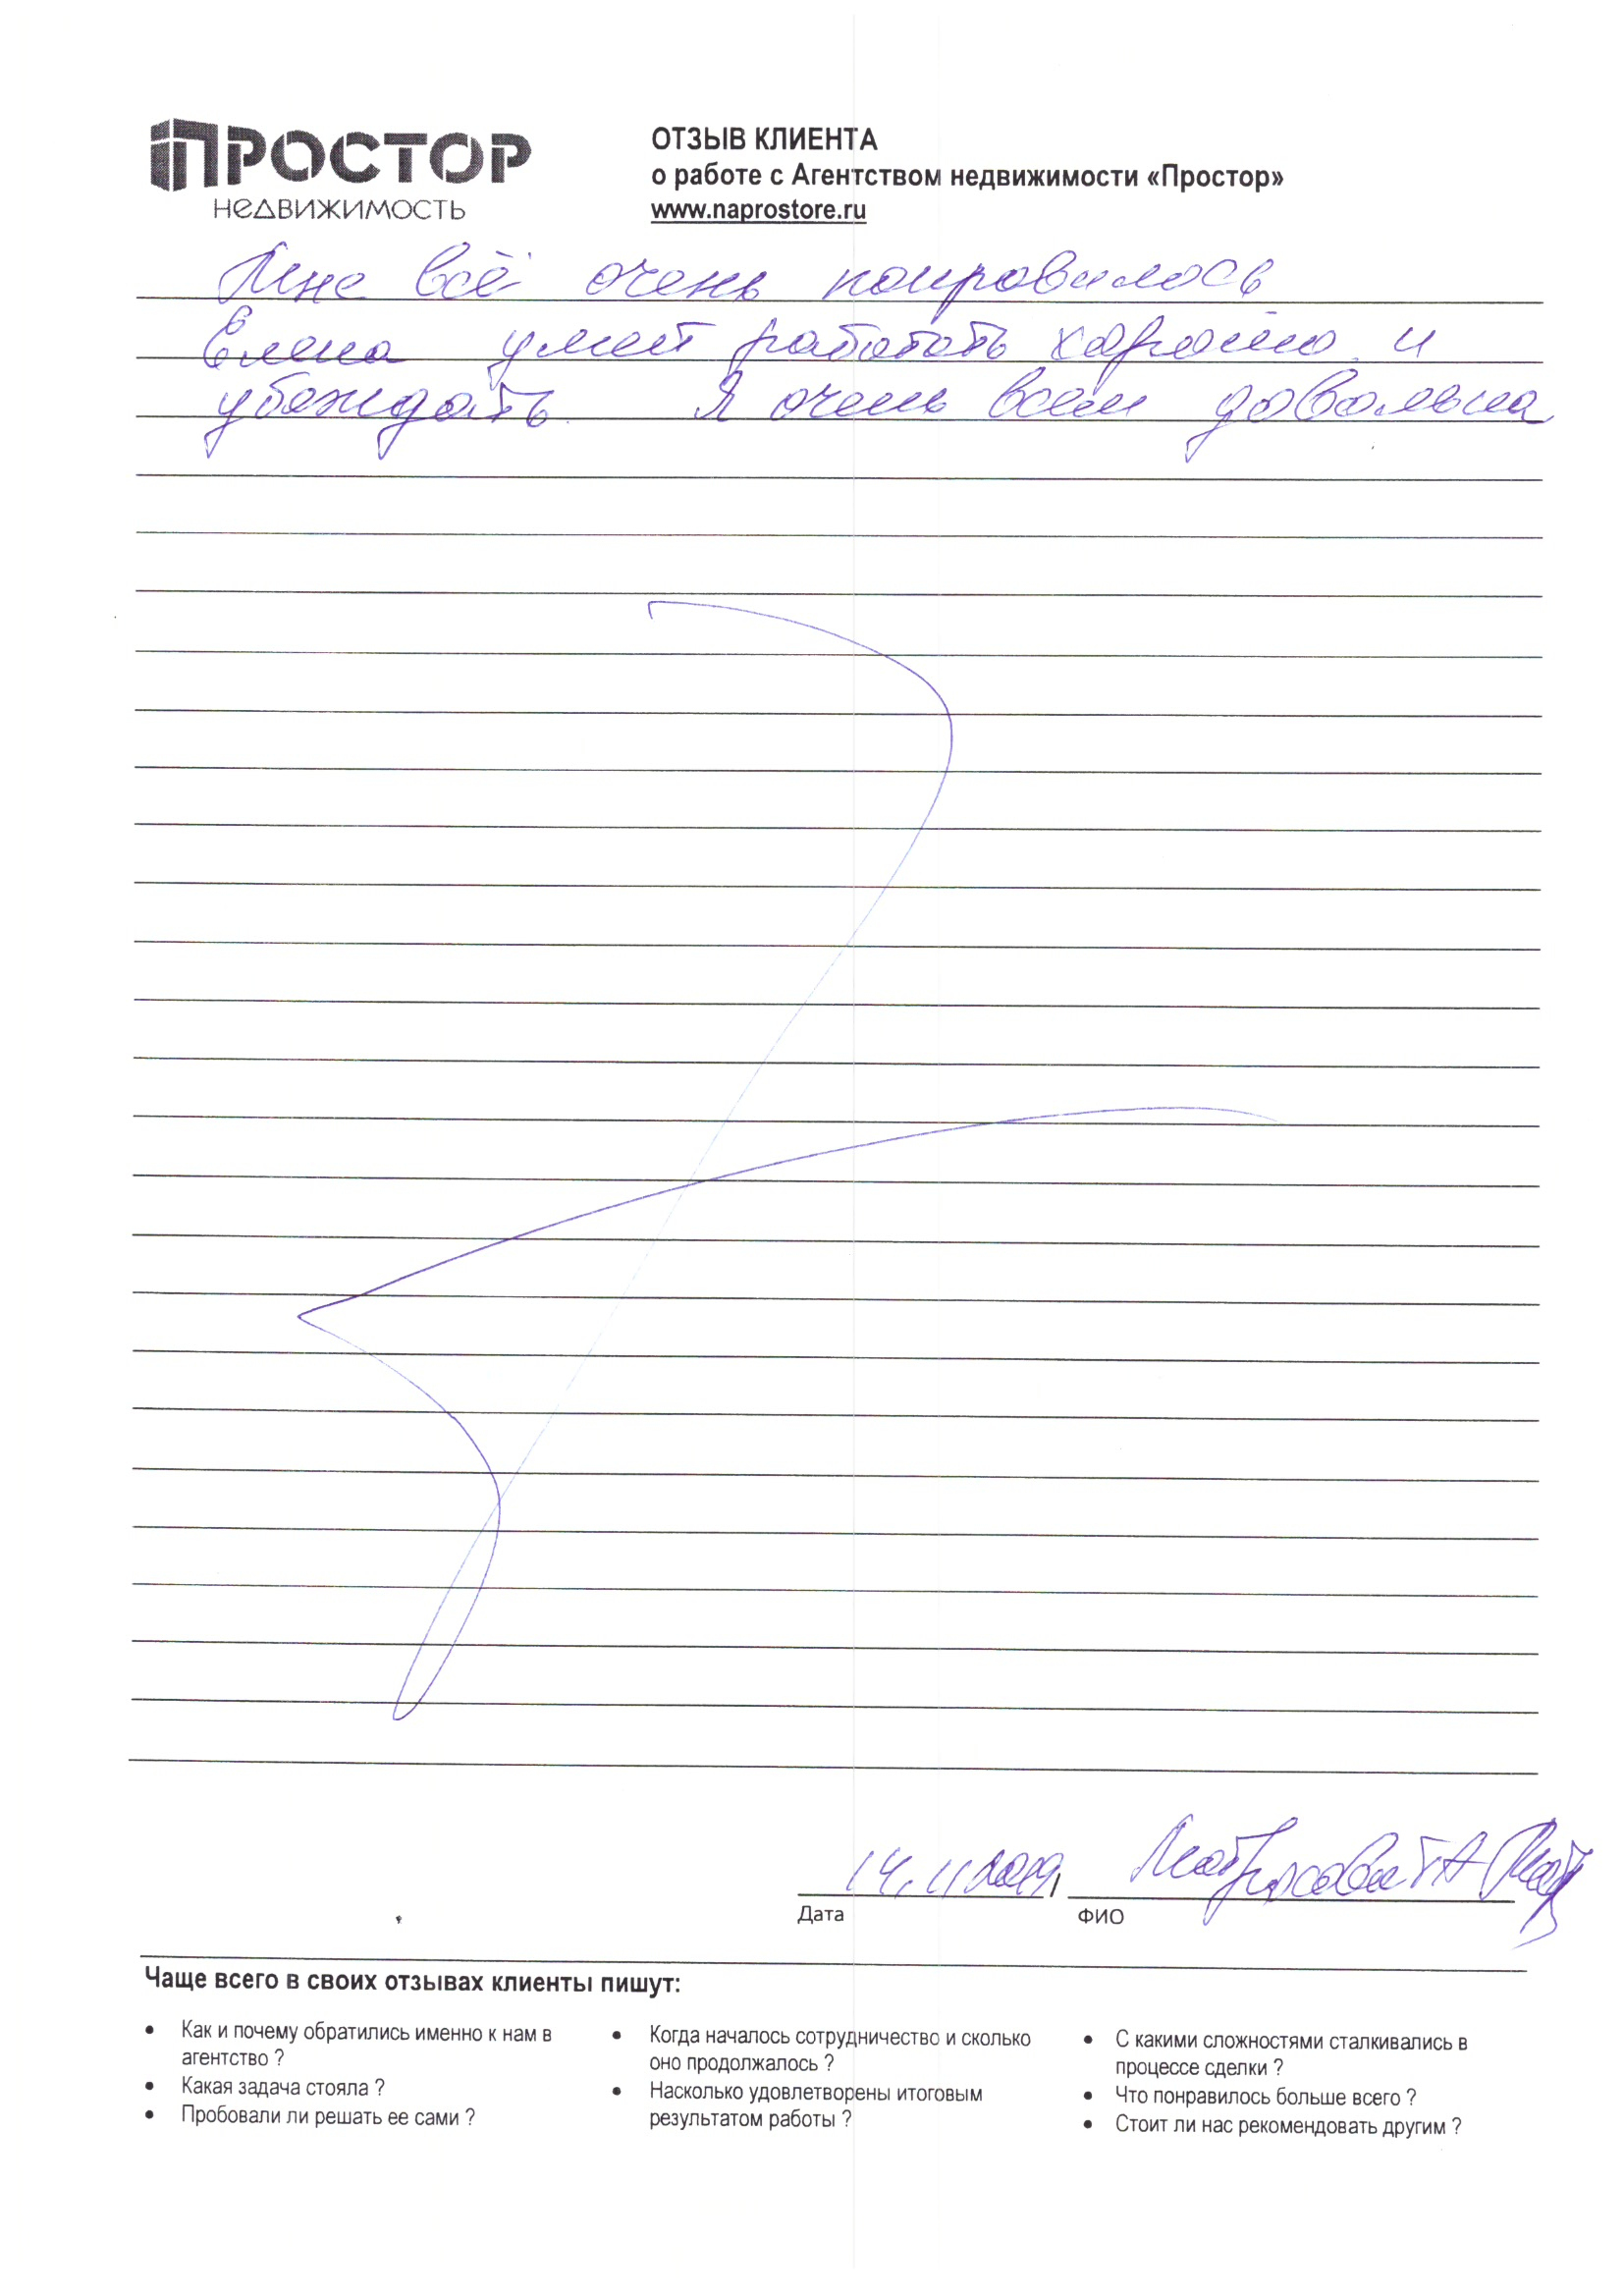 ПРОСТОР
НЕДВИЖИМОСТЬ
ОТЗЫВ КЛИЕНТА
о работе с Агентством недвижимости «Простор»
www.naprostore.ru
Мне всё очень понравилось
Елена умеет работать хорошо и
убеждать. Я очень всем довольна
14.11.2019
Дата
ФИО
Чаще всего в своих отзывах клиенты пишут:
• Как и почему обратились именно к нам в
агентство ?
• Какая задача стояла ?
• Пробовали ли решать ее сами ?
• Когда началось сотрудничество и сколько
оно продолжалось ?
• Насколько удовлетворены итоговым
результатом работы ?
• С какими сложностями сталкивались в
процессе сделки ?
• Что понравилось больше всего ?
• Стоит ли нас рекомендовать другим ?